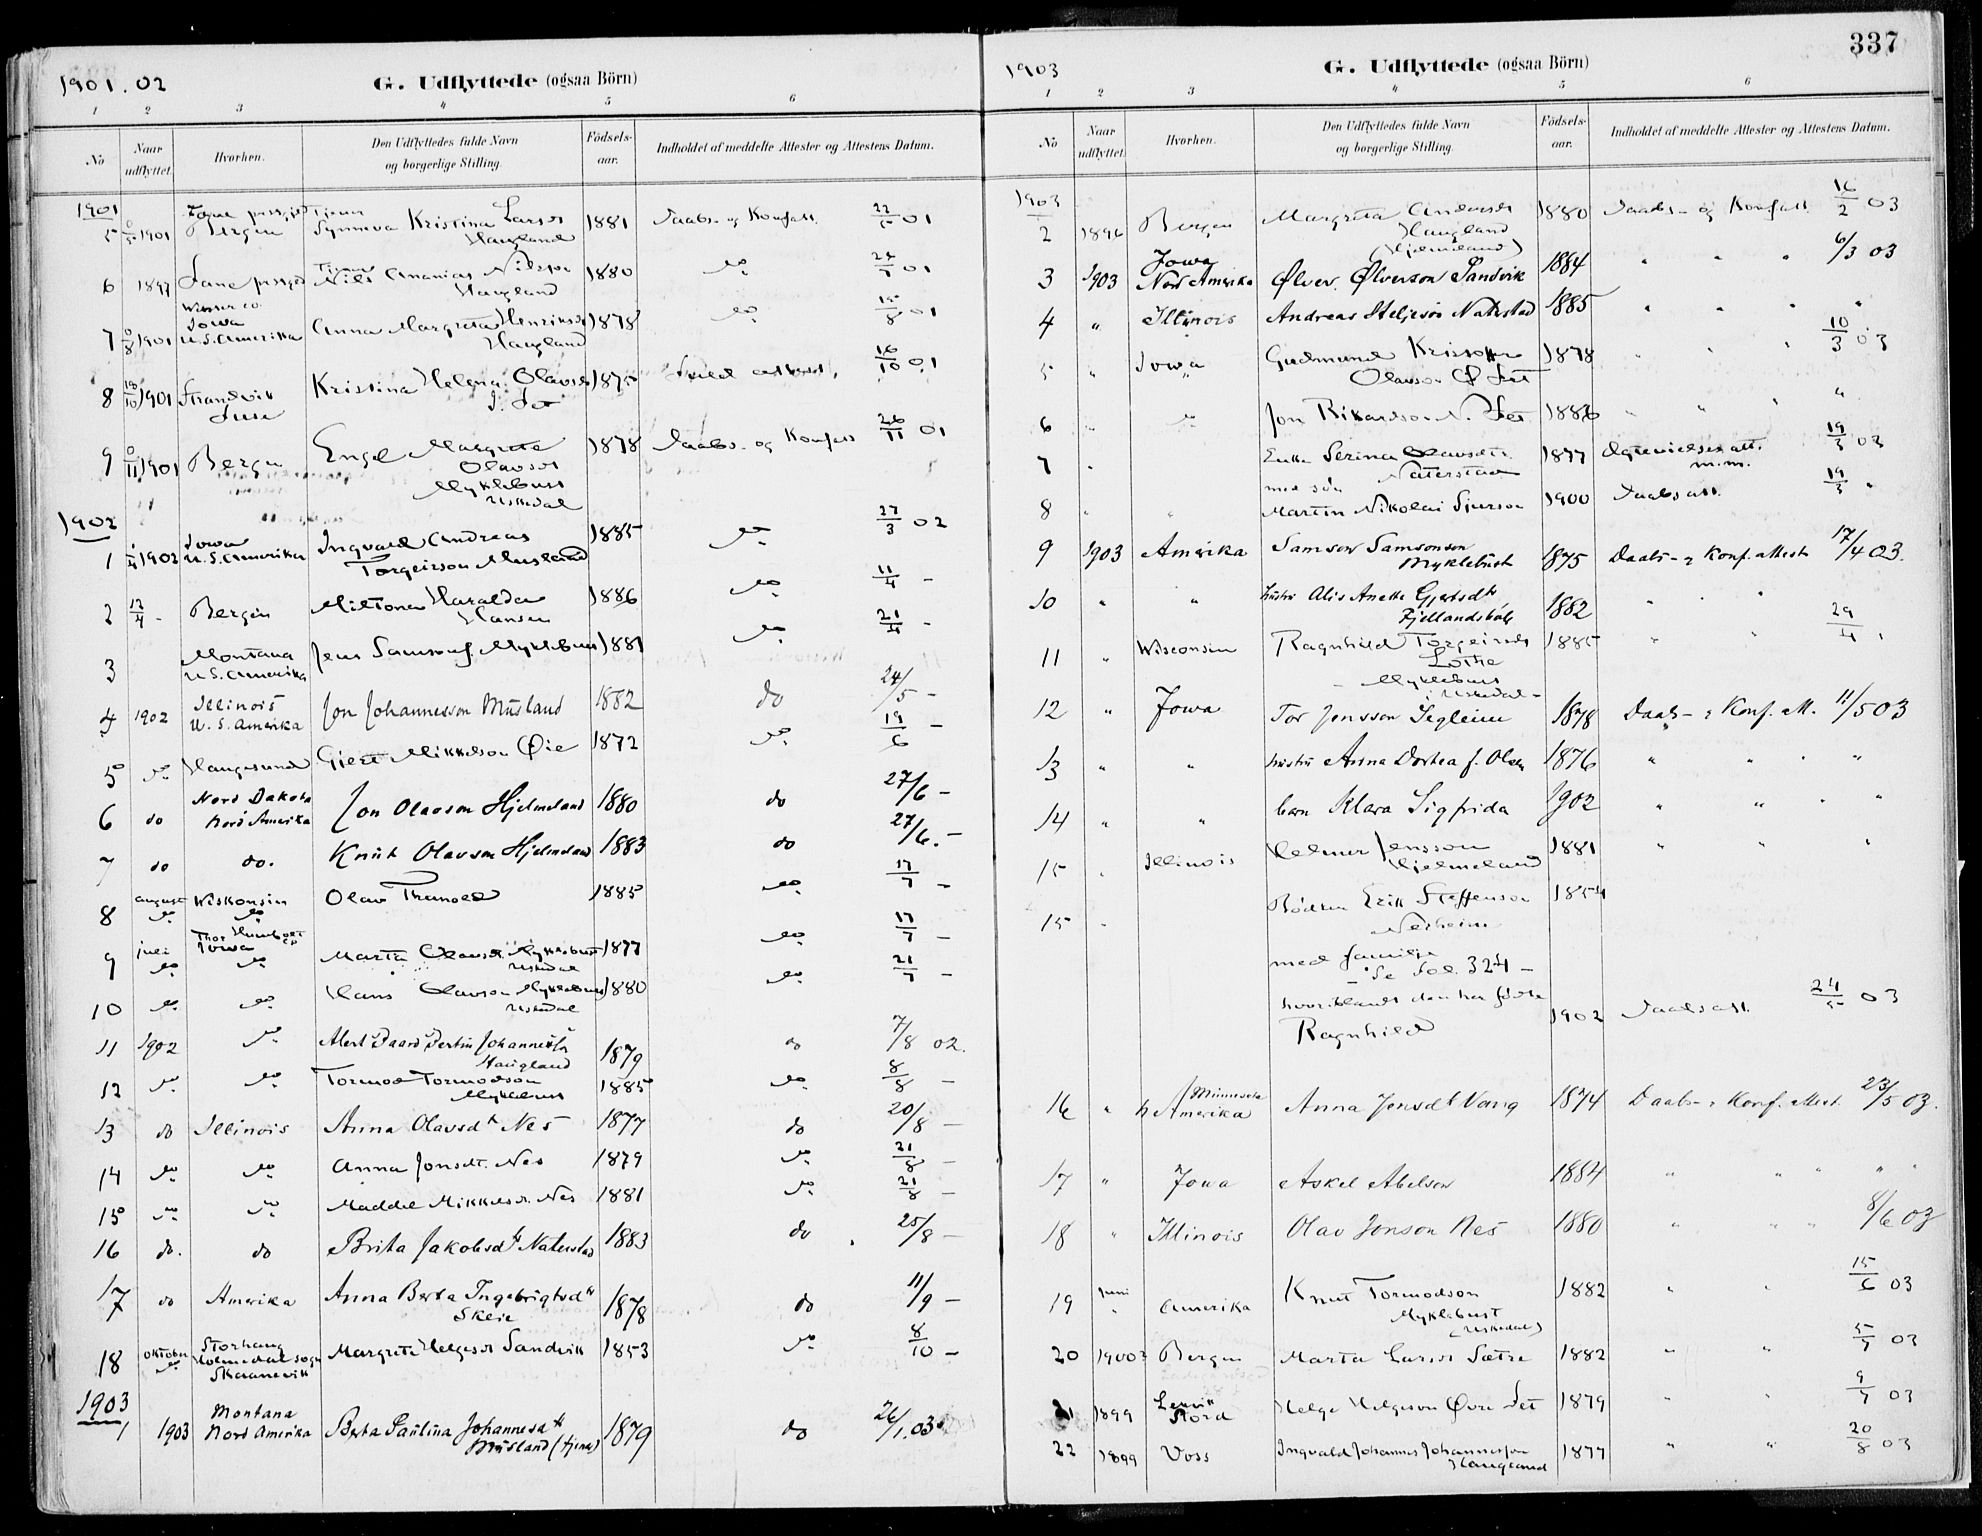 1901.02
G. Udflyttede (ogsaa Börn)
1 2 3 4 5 6
No
Naar udflyttet.
Hvorhen.
Den Udflyttedes fulde Navn og borgerlige Stilling.
Födsels-aar.
Indholdet af meddelte Attester og Attestens Datum.
1901
5 1901 Bergen Synneva Kristina Larsdt Haugland 1881 Daabs- og Konfatt. 01
6 1897 Nils Ananias Nilsson Haugland 1880 do 01
7 0/8 1901 Iowa U.S. Amerika Anna Margreta Henriksdt Haugland 1878 do 01
8 1901 Strandvik Kristina Helena Olavsdt I. Set 16/10 01
9 0/11 1901 Bergen Engel Margrete Olavsdt Myklebust Uskedal 1878 Daabs- og Konfatt 26/11 01
1902
1 1902 Iowa U.S. Amerika Ingvald Andreas Torgeirson Musland 1885 do 27/3 02
2 12/4 - Bergen Haralda Hansen 1886 do 11/4 -
3 Montana U.S. Amerika Jens Samsons. Myklebust 1881 do 21/4 -
4 1902 Illinois U.S. Amerika Jon Johannesson Musland 1882 do 24/5 -
5 do Haugesund Gjert Mikkelson Øie 1872 do 19/6 -
6 do Nord Dakota Nord Amerika Jon Olavson Hjelmeland 1880 do 27/6 -
7 do do. Knut Olavson Hjelmeland 1883 do 27/6. -
8 august do Wiskonsin do Olav 1885 do 17/7 -
9 juli do Iowa do Marta Olavsdt. Myklebust Uskedal 1877 do 17/7 -
10 do do Hans Olavson Myklebust Uskedal 1880 do 21/7 -
11 1902 do Johannesson Haugland 1879 do 7/8 02.
12 do do Tormod Tormodson Myklebust 1885 do 8/8 -
13 do Illinois Anna Olavsdtr Nes 1877 do 20/8 -
14 do do Anna Jonsdt. Nes 1879 do 21/8 -
15 do do Maddel Mikkelsdt. Nes 1881 do 21/8 -
16 do. do Brita Jakobsdtr Naterstad 1883 do 25/8 -
17 do Amerika Anna Berta Ingebrigtsdtr Skeie 1878 do 11/9 -
18 oktober do Storhaug Holmedal sogn Skaanevik Margreta Helgesdt Sandvik 1853 do 8/10 -
1903
1 1903 Montana Nord Amerika Berta Paulina Johannesdtr Musland (tjener) 1879 do 26/1.03
337
1903
G. Udflyttede (ogsaa Börn)
1 2 3 4 5 6
No
Naar udflyttet.
Hvorhen.
Den Udflyttedes fulde Navn og borgerlige Stilling.
Födsels-aar.
Indholdet af meddelte Attester og Attestens Datum.
1903
2 1896 Bergen Margreta Andersdt Haugland (Hjelmeland) 1880 Daabs- og Konfatt. 16/2 03
3 1903 Iowa Nord Amerika Ølver Ølverson Sandvik 1884 " " " 6/3 03
4 " Illinois Andreas Naterstad 1885 " " " "
5 " Iowa Gudmund Olavson Ø Set 1878 " " " 10/3 03
6 " do Jon Rikardson N. Set 1886 " " " "
7 " Enke Serina Olavsdtr. Naterstad 1877 Ægtevielsesatt. m.m. 19/3 03
8 " " med søn Martin Nikolai Sjurson 1900 Daabsatt. 19/3 "
9 1903 Amerika Samson Samsonson Myklebust 1875 Daabs- & Konf. attest 17/4 03.
10 " " hustru Alis Anette Gjertsdtr Fjellandsbøe 1882 " " "
11 " Wisconsin Ragnhild Torgeirsdt Lothe Myklebust Uskedal - 1885 " " 29/4 "
12 " Iowa Tor Jensson Segleim 1878 Daabs- & Konf. att. 11/5 03
13 " " hustru Anna Dortea f. Olsen 1876 " " " "
14 " " barn Klara Sigfrida 1902 " " " "
15 . Illinois Helmer Jensson Hjelmeland 1881 " " "
15 . Bødker Erik Steffenson Nerheim 1854
med familje - Se fol. 324 -
hvoriblandt den her fødte Ragnhild 1902 Daabsatt. 24/5 03
16 " Minnesota N Amerika Anna Jensdtr Vang 1874 Daabs- & Konf. attest. 23/5 03.
17 " Iowa Askel Abelson 1884 " " " " "
18 " Illinois Olav Jonson Nes 1880 " " " 8/6 03
19 juni " Amerika Knut Tormodson Myklebust (Uskedal) 1882 " " 15/6 03
20 Bergen Marta Larsdt Sætre 1882 " " 5/7 03
21 1899 Leirvik Stord Helge Helgeson Øvre Set 1879 " " 9/7 03
22 1899 Voss Ingvald Johannes Johannesson Haugland 1877 " " 20/8 03